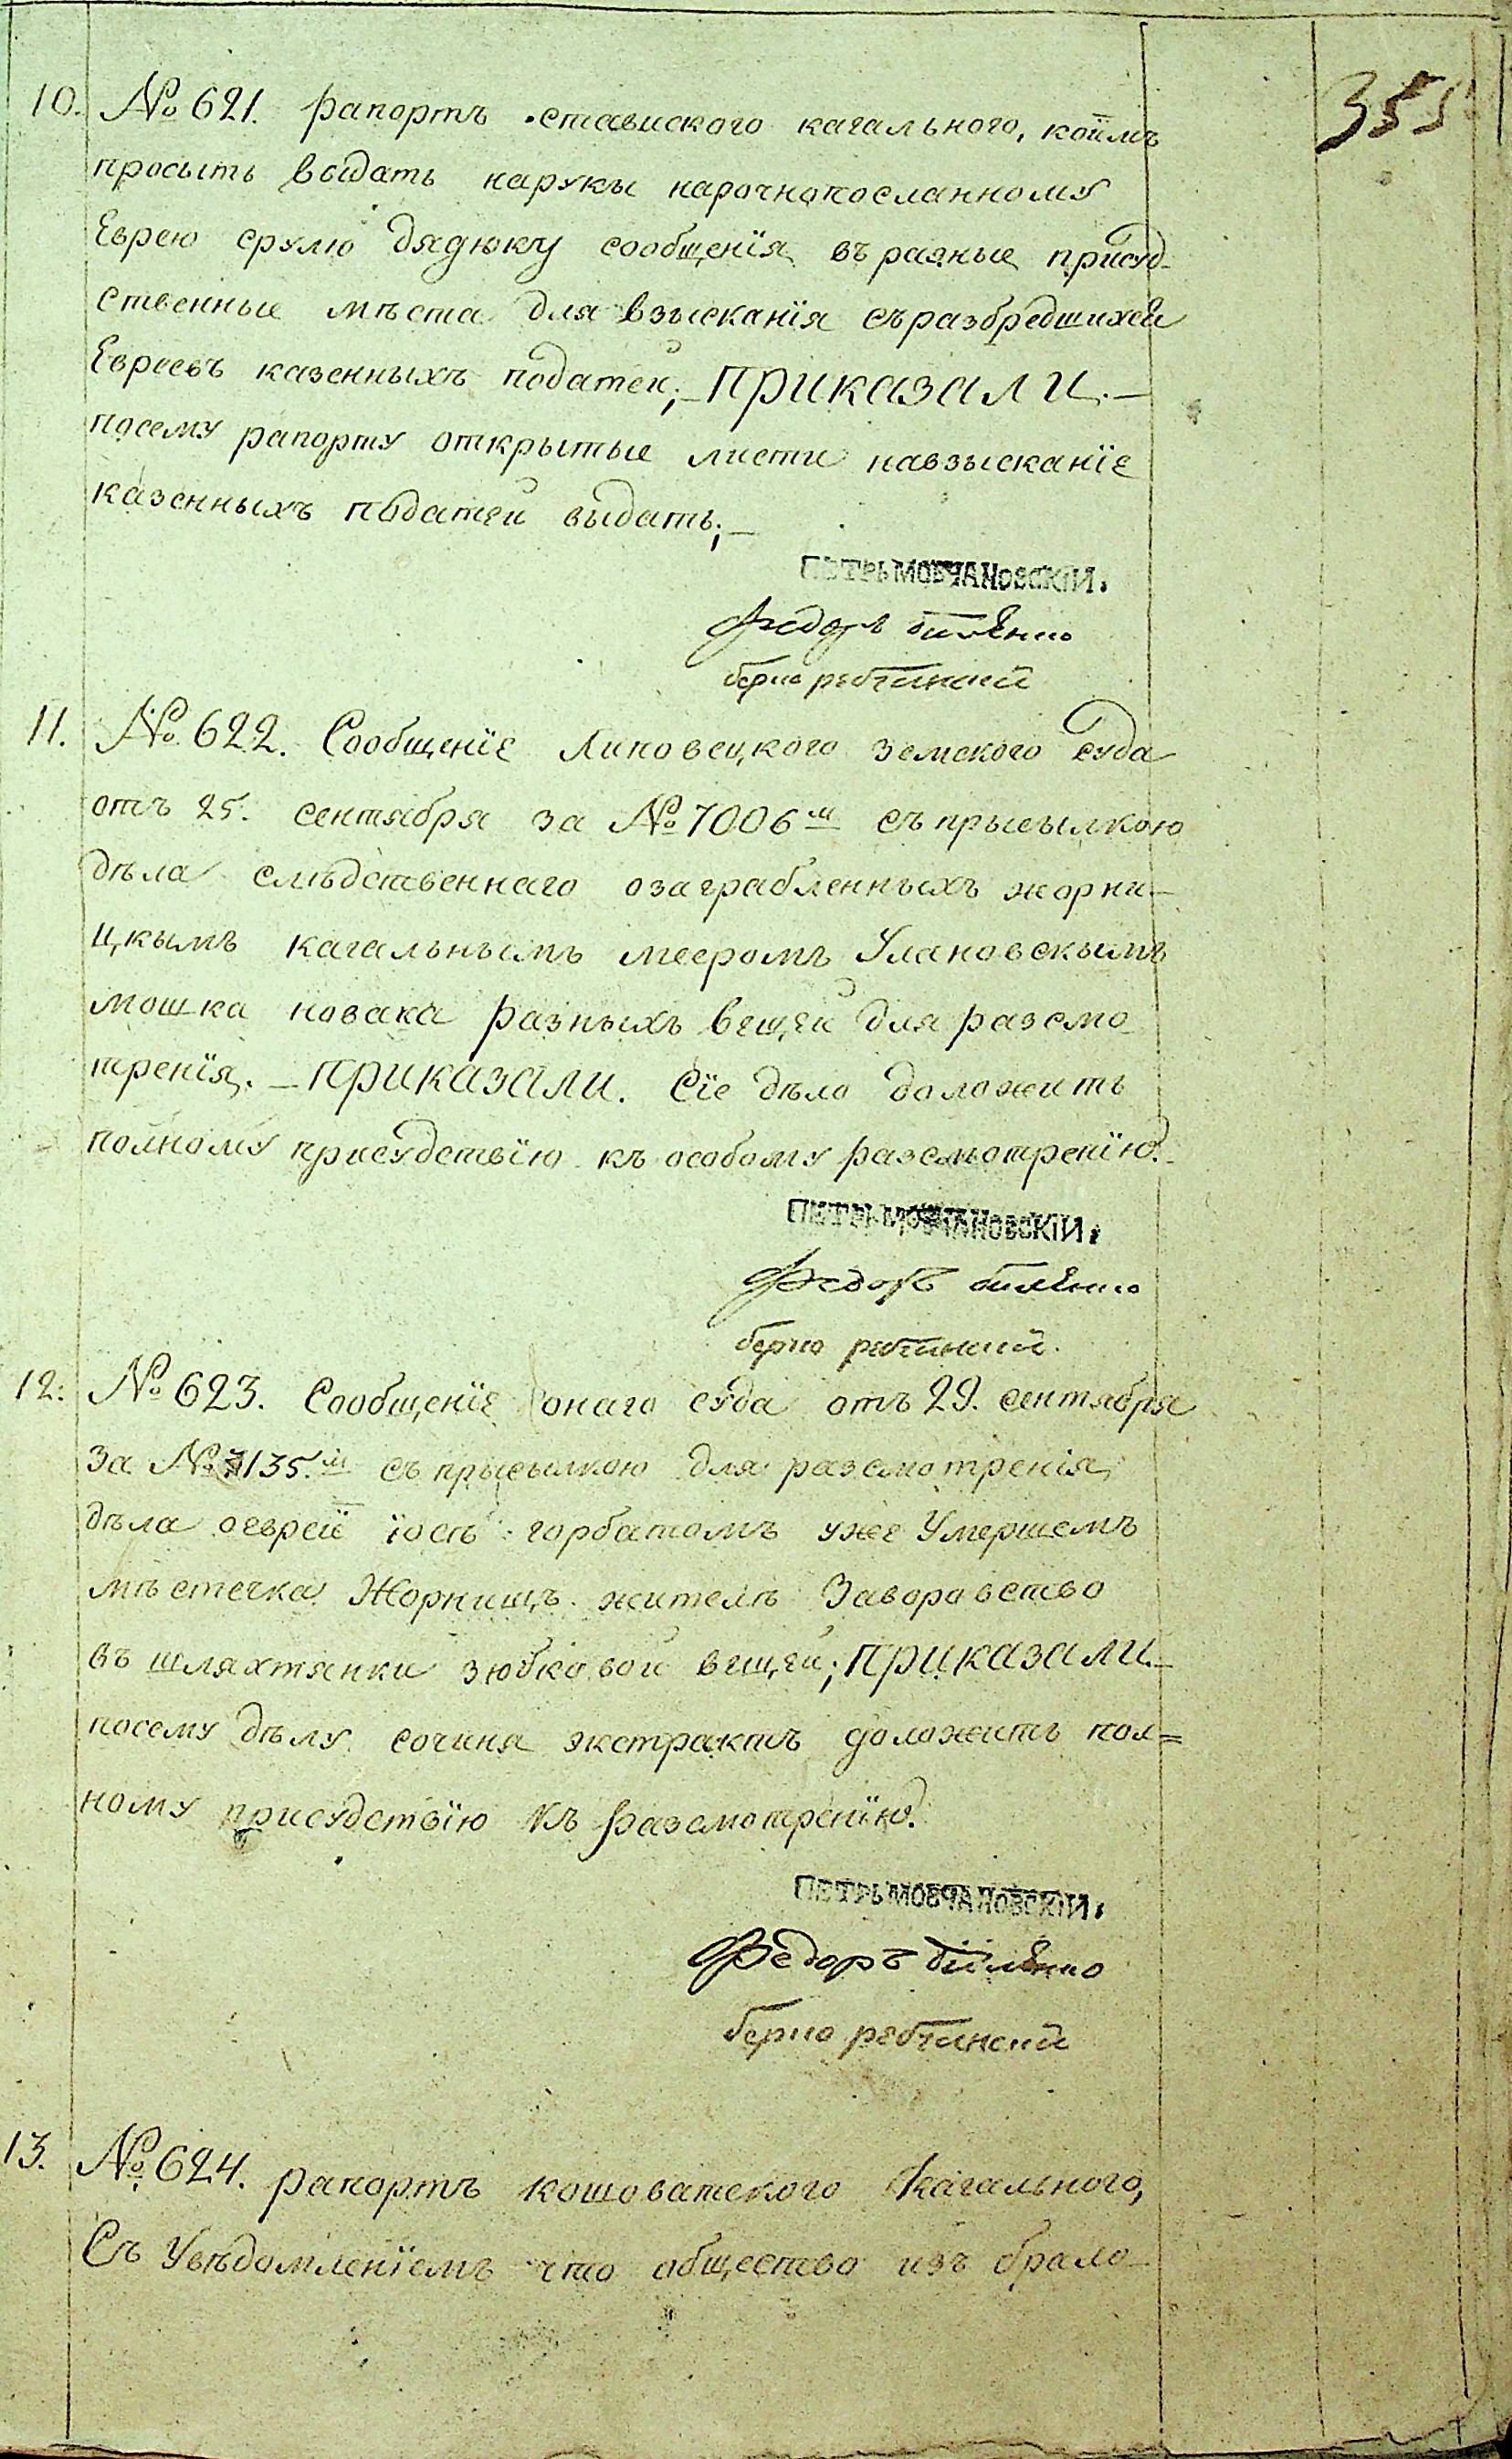 355
10. № 621. рапортъ ставиского кагального, коимъ
просытъ выдать нарукы нарочнопосланному
Еврею срулю дядюку сообщенїя въ разные присуд-
ственные мѣста для взысканїя съ разбредшихся
Евреевъ казенныхъ податей; – ПРИКАЗАЛИ. –
посему рапорту открытые листи навзысканїе
казенныхъ податей выдать; –
ПЕТРЬ МОВЧАНОВСКІИ.
Федоръ
берко
11. № 622. Сообщенїе Липовецкого земского суда
отъ 25. сентября за № 7006м съ прысылкою
дѣла слѣдственнаго озаграбленныхъ жорни-
цкымъ кагальнымъ мееромъ Улановскымъ
мошка новака разныхъ вещей для разсмо
тренїя. – ПРИКАЗАЛИ. Сїе дѣло доложить
полному присудствїю къ особому разсмотренїю. –
ПЕТРЬ МОВЧАНОВСКІИ.
Федоръ
берко
12. № 623. Сообщенїе онаго суда отъ 29. сентября
за № 7135.м съ прысылкою для разсмотренїя
дѣла оеврей їосѣ горбатомъ уже Умершемъ
мѣстечка Жорнищъ жителѣ Заворовство
въ шляхтянки зюбковой вещей; ПРИКАЗАЛИ. –
посему дѣлу сочиня экстрактъ доложить пол=
ному присудствїю къ разсмотренїю.
ПЕТРЬ МОВЧАНОВСКІИ.
Федоръ
берко
13. № 624. рапортъ кошоватского кагального,
Съ Увѣдомленїемъ что общество изъ брало